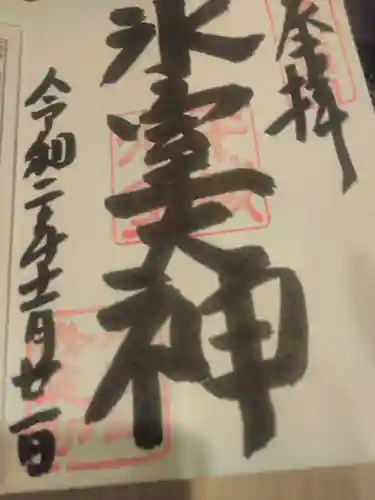 奉拝
氷室天神
令和二年十二月廿一日